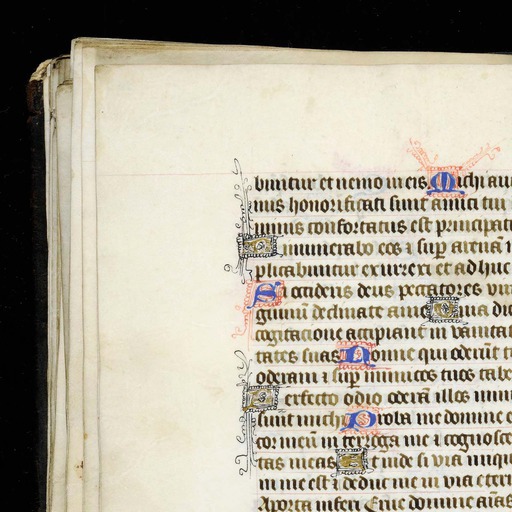 buntur et nemo in eis Michi au
mis honorificati sunt amici tui
nimis confortatus est principat
Dinumerabo eos i sup arenam
plicabuntur exurrexi et adhuc
Si occideris deus peccatores vi
guinum declinate a me Quia dic
cogitacione accipiant in vanitat
tates suas Nonne qui oderunt t
oderam i sup inimicos tuos tabe
Perfecto odio oderam illos inimi
sunt michi Proba me domine e
cor meum interroga me i cognosce
tas meas Et vide si via iniqui
in me est i deduc me in via etern
A porta inferi Erue domine aias